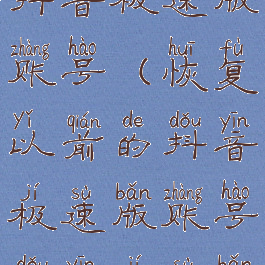 抖音极速版
zhàng hào huī fù
账号（恢复
yǐ qián de dǒu yīn
以前的抖音
jí sù bǎn zhàng hào
极速版账号
dǒu yīn jí sù bǎn